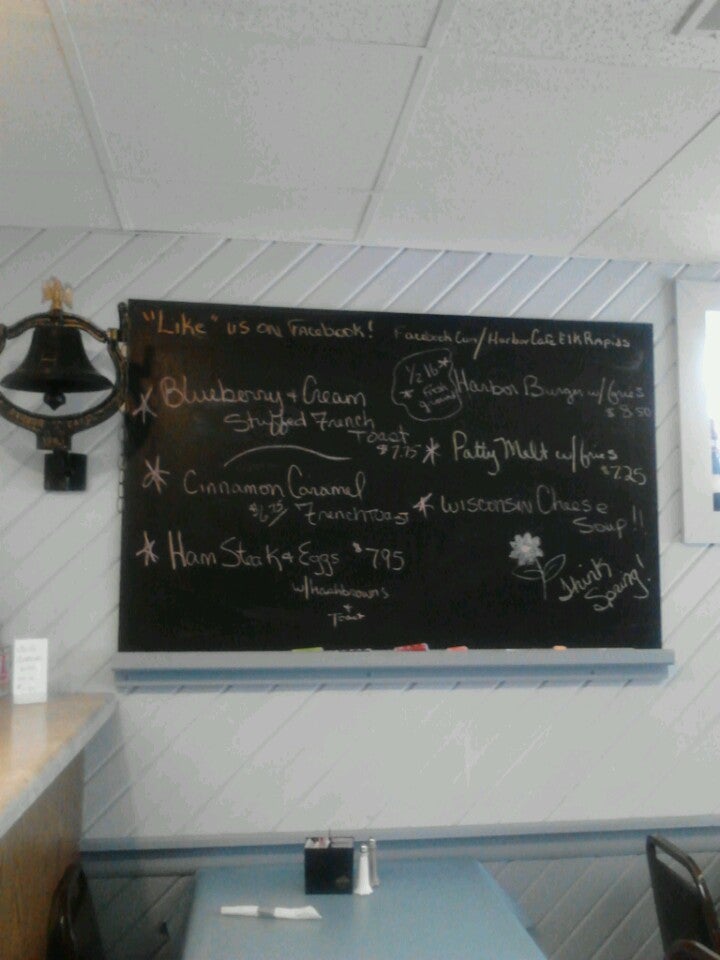 "Like" us on Facebook! Facebook.Com/HarborCafeElkRapids
* Blueberry & Cream
Stuffed French
Toast
$7.75
* Cinnamon Caramel
$6.75/ French Toast
* Ham Steak & Eggs $7.95
w/Hashbrowns
&
Toast
1/2 lb *
* Fresh
ground
Harbor Burger w/fries
$8.50
* Patty Melt w/fries
$7.25
* Wisconsin Cheese
Soup!!
Think
Spring!